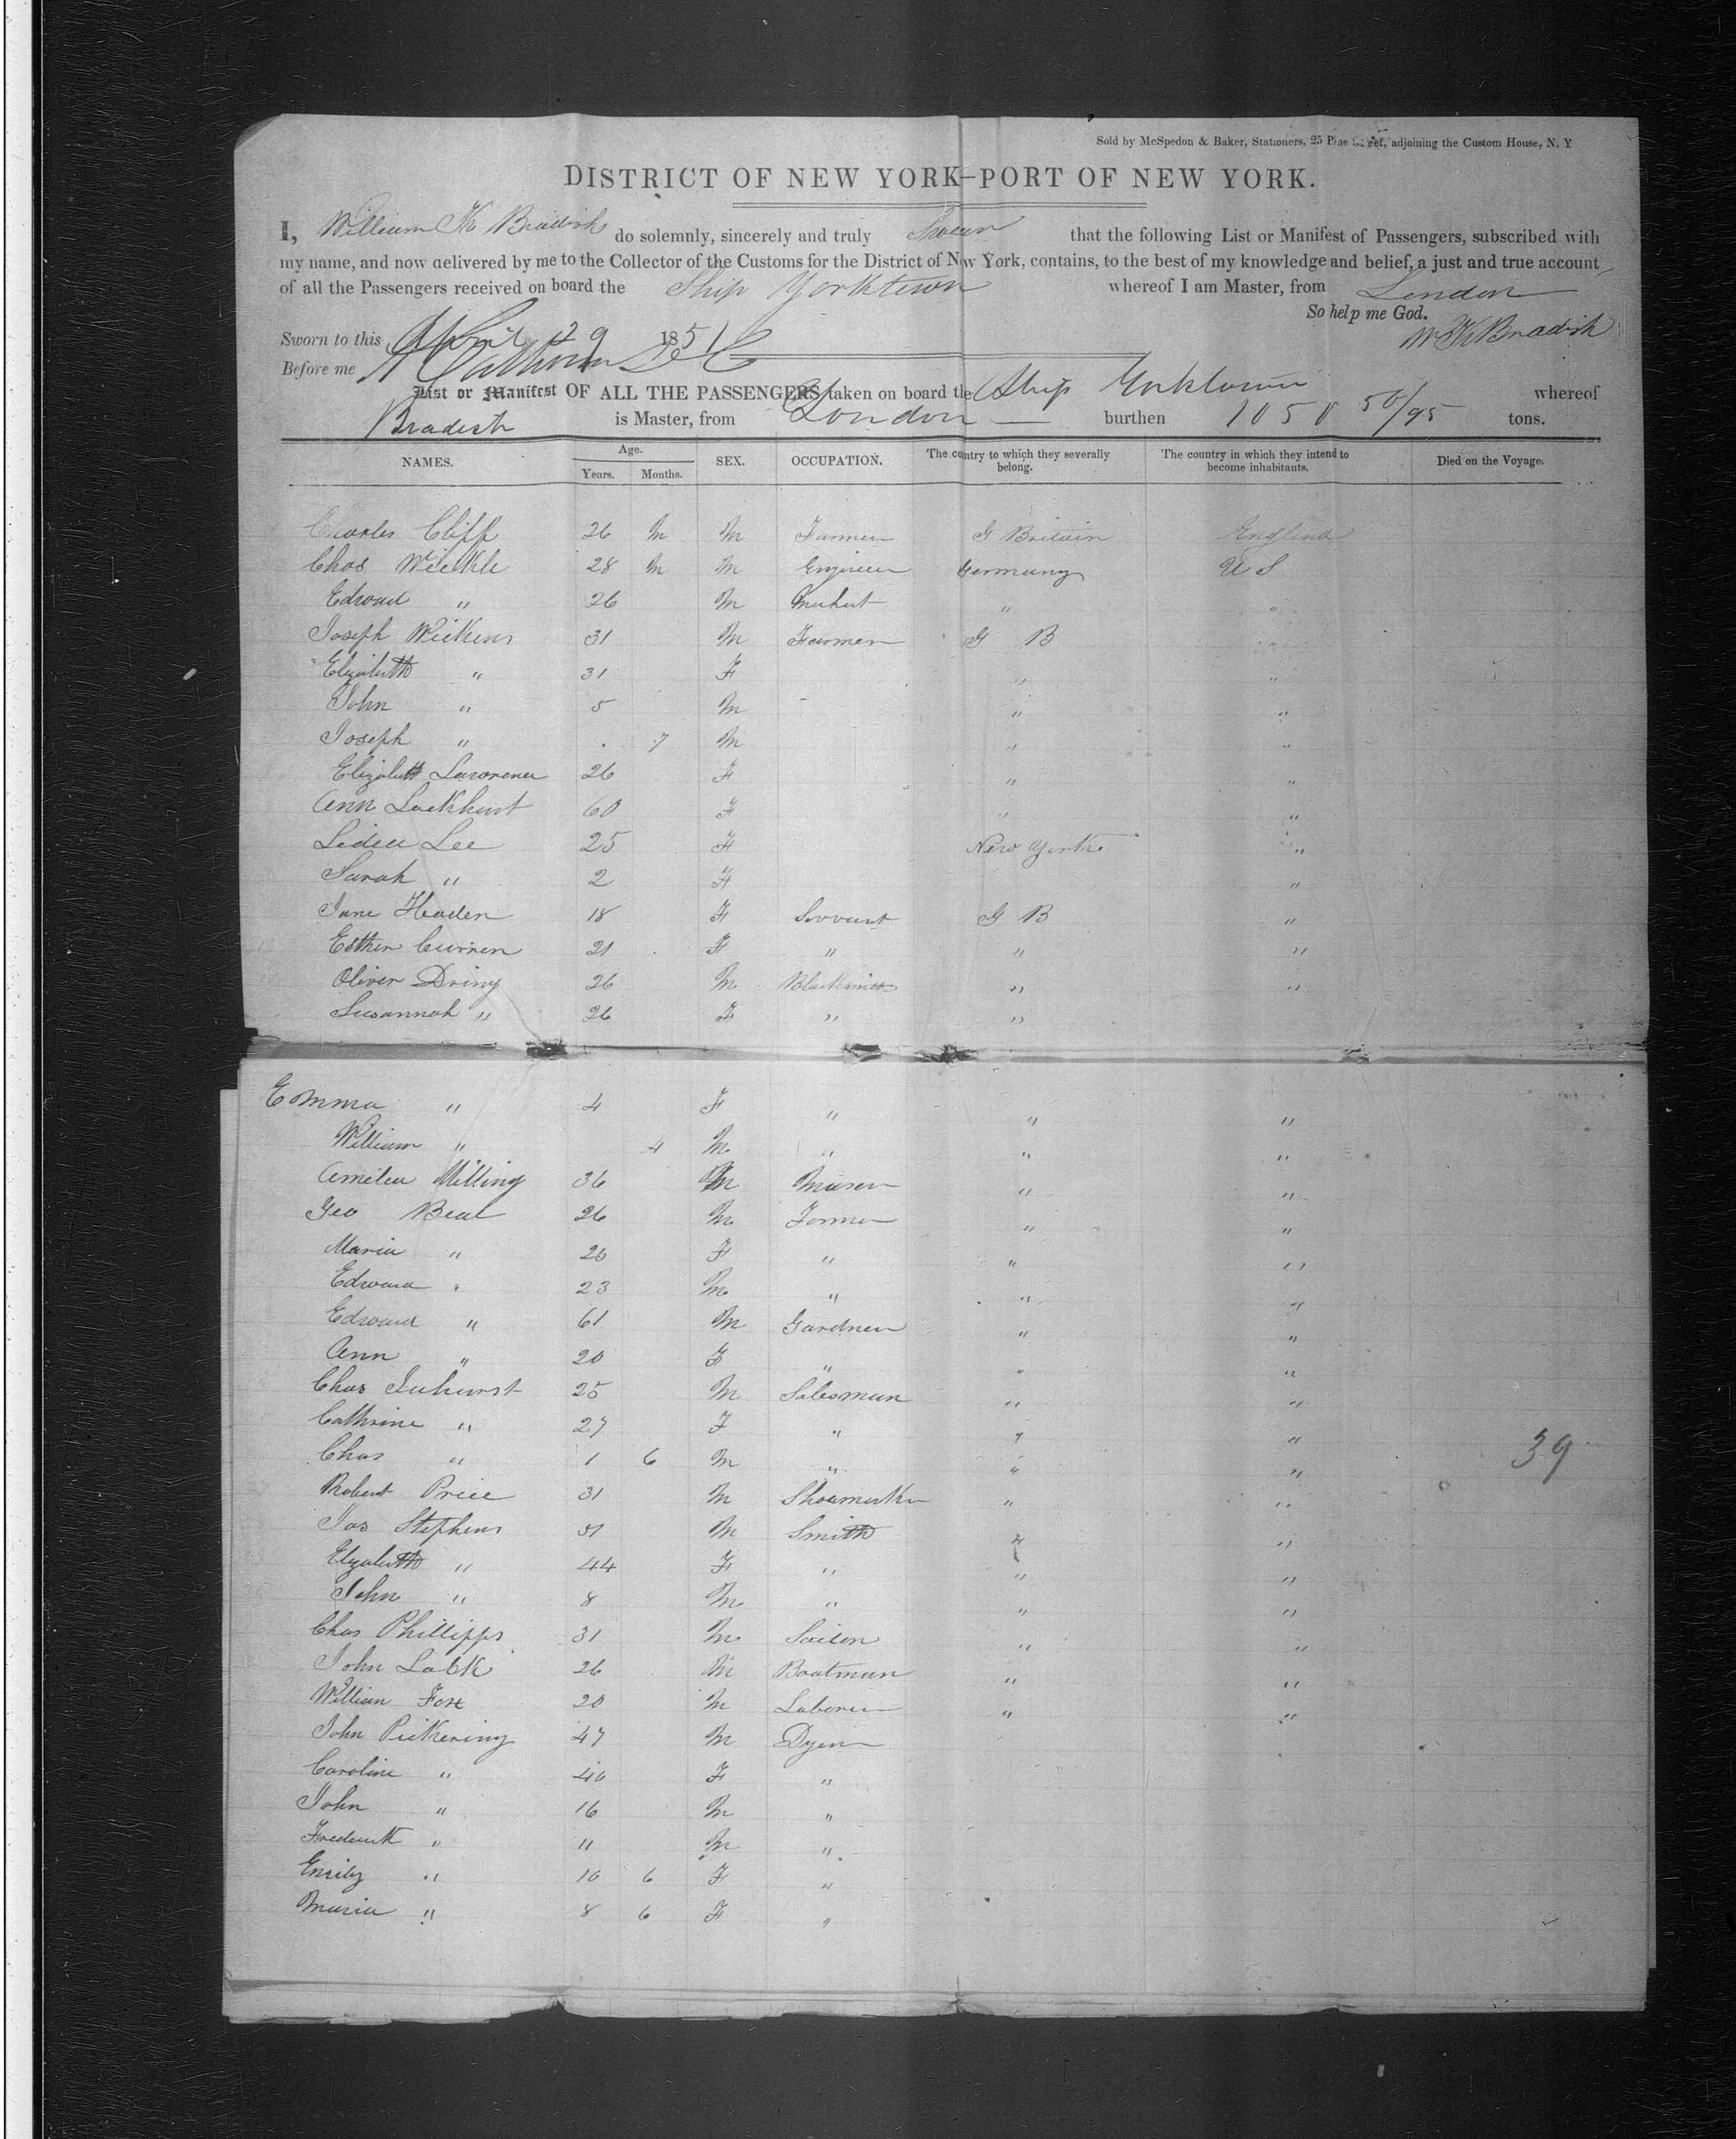 Sold by McSpedon & Baker, Stationers, 25 Pine Street, adjoining the Custom House, N. Y
DISTRICT OF NEW YORK—PORT OF NEW YORK.
I, William K Bradish do solemnly, sincerely and truly Swear that the following List or Manifest of Passengers, subscribed with
my name, and now delivered by me to the Collector of the Customs for the District of New York, contains, to the best of my knowledge and belief, a just and true account
of all the Passengers received on board the Ship Yorktown whereof I am Master, from London
So help me God.
Sworn to this April 29 1851 Wm K Bradish
Before me
List or Manifest OF ALL THE PASSENGERS taken on board the Ship Yorktown whereof
Bradish is Master, from London burthen 1050 50/95 tons.
NAMES. Age. Years. Months. SEX. OCCUPATION. The country to which they severally belong. The country in which they intend to become inhabitants. Died on the Voyage.
Charles Cliff 26 M M Farmer G Britain England
Chas 28 M M Engineer Germany U S
Edward " 26 M " "
Joseph Wickens 31 M Farmer G B
Elizabeth " 31 F " "
John " 5 M " "
Joseph " 7 M " "
Elizabeth Lawrence 26 F " "
Ann Lockhurst 60 F " "
Lidia Lee 25 F New York "
Sarah " 2 F "
Jane Haden 18 F Servant G B "
Esther Curren 21 F " " "
Oliver Dring 26 M Blacksmith " "
Susannah " 26 F " "
Emma " 4 F " " "
William " 4 M " " "
Amelia Milling 36 M Mason " "
Geo Beal 26 M Farmer " "
Maria " 20 F " " "
Edward " 23 M " " "
Edward " 61 M Gardner " "
Ann " 20 F " " "
Chas 25 M Salesman " "
Cathrine " 27 F " " "
Chas " 1 6 M " " " 39
Robert Price 31 M Shoemaker " "
Jas Stephens 51 M Smith " "
Elyzabeth " 44 F " " "
John " 8 M " " "
Chas Phillipps 31 M Sailor " "
John 26 M Boatman " "
William Fox 20 M Laborer " "
John Pickering 47 M Dyer
Caroline " 40 F "
John " 16 M "
Frederick " 11 M "
Emily " 10 6 F "
Maria " 8 6 F "